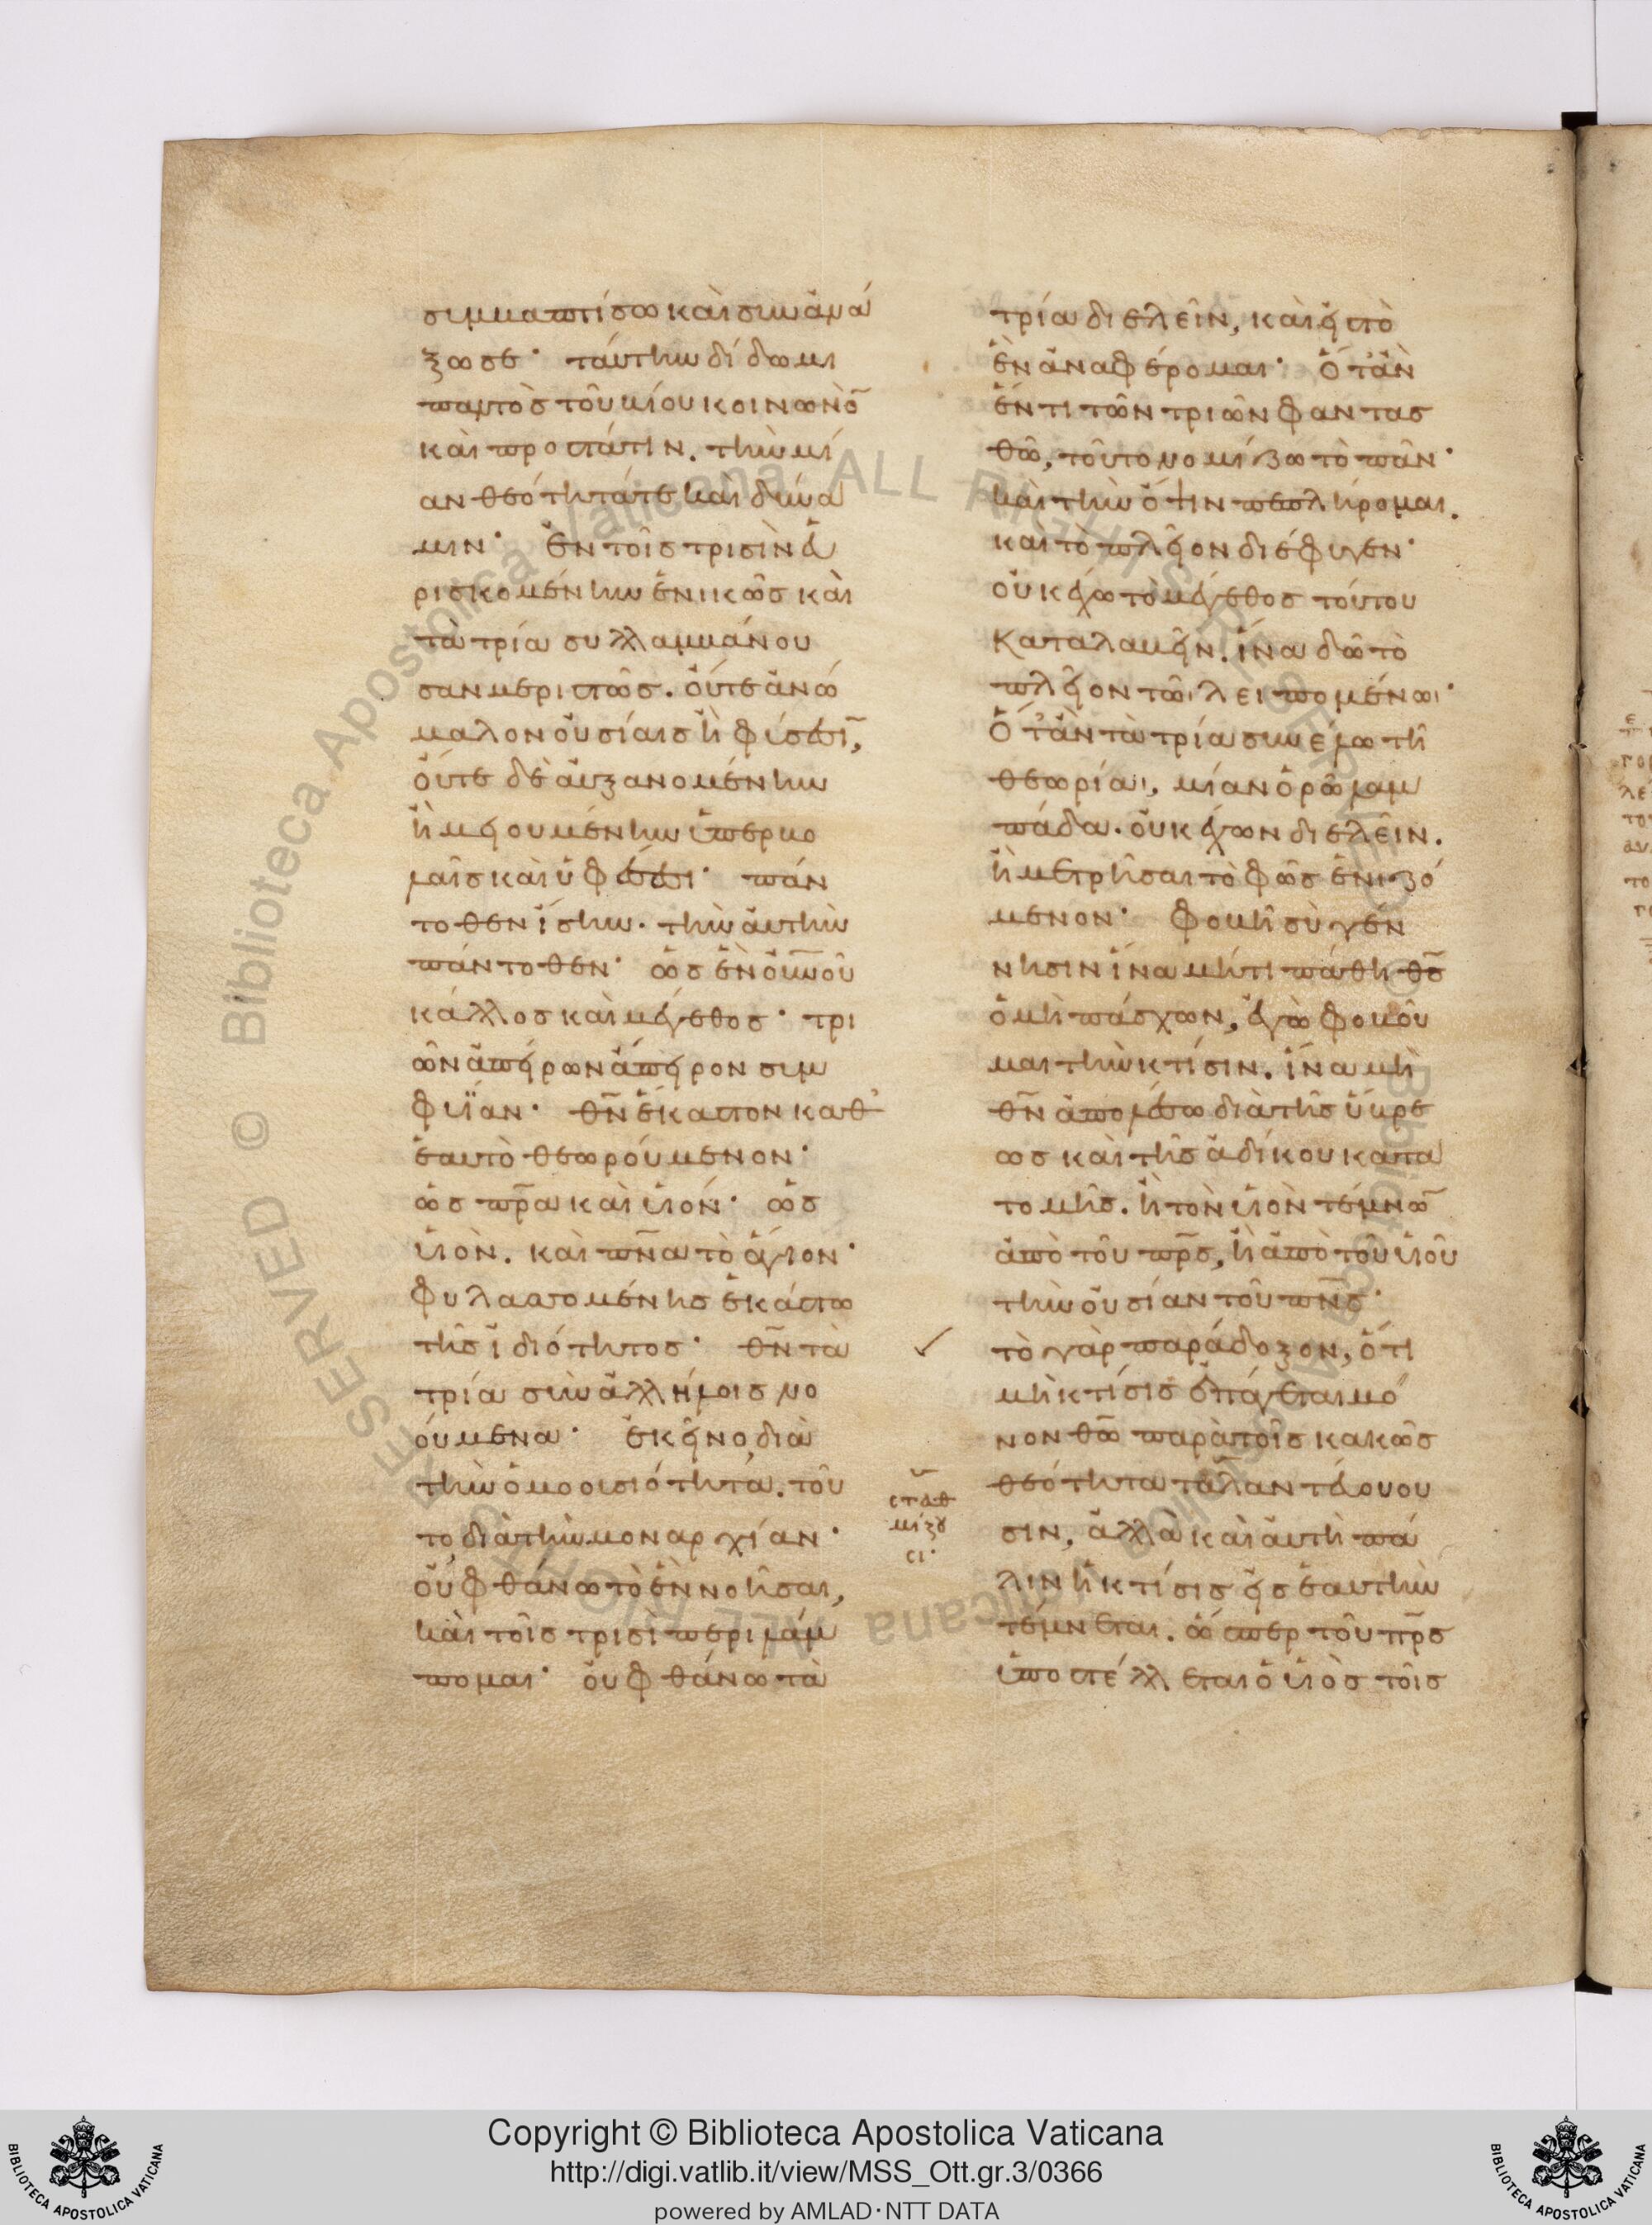 συμβαπτίσω καὶ συνανά
ξω σε· ταύτην δίδωμι
παντὸς τοῦ βίου κοινωνὸ̅
καὶ προστάτιν. τὴν μί
αν θεότητά τε καὶ δύνα
μιν· ἐν τοῖς τρισὶν εὑ
ρισκομένην ἑνικῶς καὶ
τὰ τρία συλλαμβάνου
σαν μεριστῶς. οὔτε ἀνώ
μαλον οὐσίαις ἢ φύσεσι̅,
οὔτε δὲ αὐξανομένην
ἢ μειουμένην ὑπερβο
λαῖς καὶ ὑφέσεσι· πάν
τοθεν ἴσην. τὴν αὐτὴν
πάντοθεν· ὡς ἓν οὐ̅νοῦ
κάλλος καὶ μέγεθος· τρι
ῶν ἀπείρων ἄπειρον συμ
φυΐαν· θ̅ν ἕκαστον καθ'
ἑαυτὸ θεωρούμενον·
ὡς π̅ρ̅α καὶ υἱόν· ὡς
υἱὸν. καὶ π̅ν̅α τὸ ἅγιον·
φυλασσομένης ἑκάστω
τῆς ἰδιότητος· θ̅ν τὰ
τρία σὺν ἀλλήλοις νο
ούμενα· ἐκεῖνο, διὰ
τὴν ὁμοουσιότητα. τοῦ
το, διὰ τὴν μοναρχίαν·
οὐ φθάνω τὸ ἓν νοῆσαι,
καὶ τοῖς τρισὶ περιλάμ
πομαι· οὐ φθάνω τὰ
τρία διελεῖν, καὶ εἰς τὸ
ἓν ἀναφέρομαι· Ὅταν
ἕν τι τῶν τριῶν φαντασ
θῶ, τοῦτο νομίζω τὸ πᾶν·
καὶ τὴν ὄψιν πεπλήρομαι.
καὶ τὸ πλεῖον διέφυγεν·
οὐκ ἔχω τὸ μέγεθος τούτου
καταλαβεῖν. ἵνα δῶ τὸ
πλεῖον τῶι λειπομένωι·
Ὅταν τὰ τρία συνέλω τῆ
θεωρίαι, μίαν ὁρῶ λαμ
πάδα. οὐκ ἔχων διελεῖν.
ἢ μετρῆσαι τὸ φῶς ἑνιζό
μενον· φοβῆ σὺ γέν
νησιν ἵνα μήτι πάθη θ̅ς
ὁ μὴ πάσχων, ἐγὼ φοβοῦ
μαι τὴν κτίσιν. ἵνα μὴ
θ̅ν ἀπολέσω διὰ τῆς ὕβρε
ως καὶ τῆς ἀδίκου κατα
τομῆς. ἢ τὸν υἱὸν τέμνω̅
ἀπὸ τοῦ π̅ρ̅ς, ἢ ἀπὸ τοῦ υἱοῦ
τὴν οὐσίαν τοῦ π̅ν̅ς·
τὸ γὰρ παράδοξον, ὅτι
μὴ κτίσις ἐπάγεται μό
νον θ̅ω παρὰ τοῖς κακῶς
θεότητα ταλαντεύουσ
σταθ
μίζου
σι·
σιν, ἀλλὰ καὶ αὐτὴ πά
λιν ἡ κτίσις εἰς ἑαυτὴν
τέμνεται. ὥσπερ τοῦ π̅ρ̅ς
ὑποστέλλεται ὁ υἱὸς τοῖς
Copyright © Biblioteca Apostolica Vaticana
http://digi.vatlib.it/view/MSS_Ott.gr.3/0366
powered by AMLAD·NTT DATA